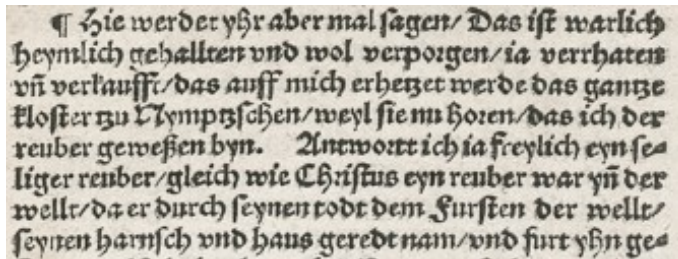 ¶ Hie werdet yhr aber mal sagen/ Das ist warlich
heymlich gehallten vnd wol verporgen/ia verrhaten
vñ verkaufft/das auff mich erhetzet werde das gantze
kloster tzu Nymptzschen/weyl sie nu horen/das ich der
reuber geweßen byn. Antwortt ich ia freylich eyn se⸗
liger reuber/gleich wie Christus eyn reuber war yñ der
wellt/da er durch seynen todt dem Fursten der wellt/
seynen harnsch vnd haus geredt nam/vnd furt yhn ge⸗